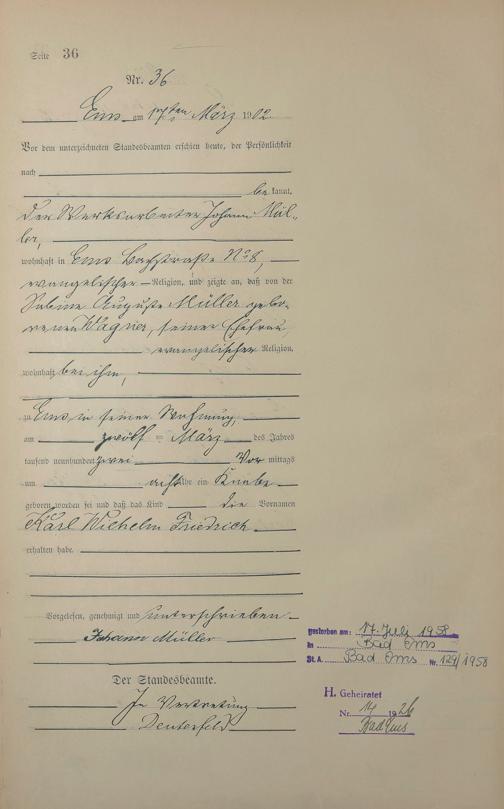 Seite 36
Nr. 36
Ems am 17ten März 1902
Vor dem unterzeichneten Standesbeamten erschien heute, der Persönlichkeit
nach
bekannt,
der Werksarbeiter Johann Mül-
ler,
wohnhaft in Ems Bachstraße No 8,
evangelischer Religion, und zeigte an, daß von der
Sabine Auguste Müller gebo-
renen Wagner, seiner Ehefrau,
evangelischer Religion,
wohnhaft bei ihm,
zu Ems in seiner Wohnung,
am zwölf März des Jahres
tausend neunhundert zwei Vor mittags
um acht Uhr ein Knabe
geboren worden sei und daß das Kind die Vornamen
Karl Wilhelm Friedrich
erhalten habe.
Vorgelesen, genehmigt und unterschrieben
Johann Müller
Der Standesbeamte.
In Vertretung
gestorben am: 17. Juli 1958
in Bad Ems
St. A. Bad Ems Nr. 129/1958
H. Geheiratet
Nr. 14 1926
Bad Ems